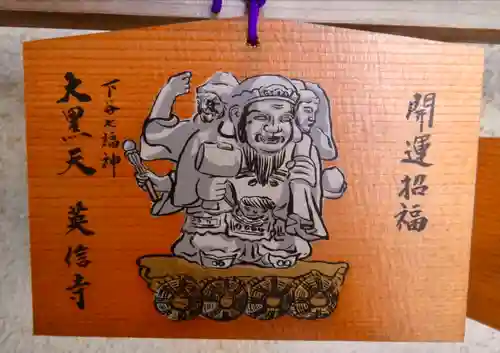 開運招福
下谷七福神
大黒天 英信寺